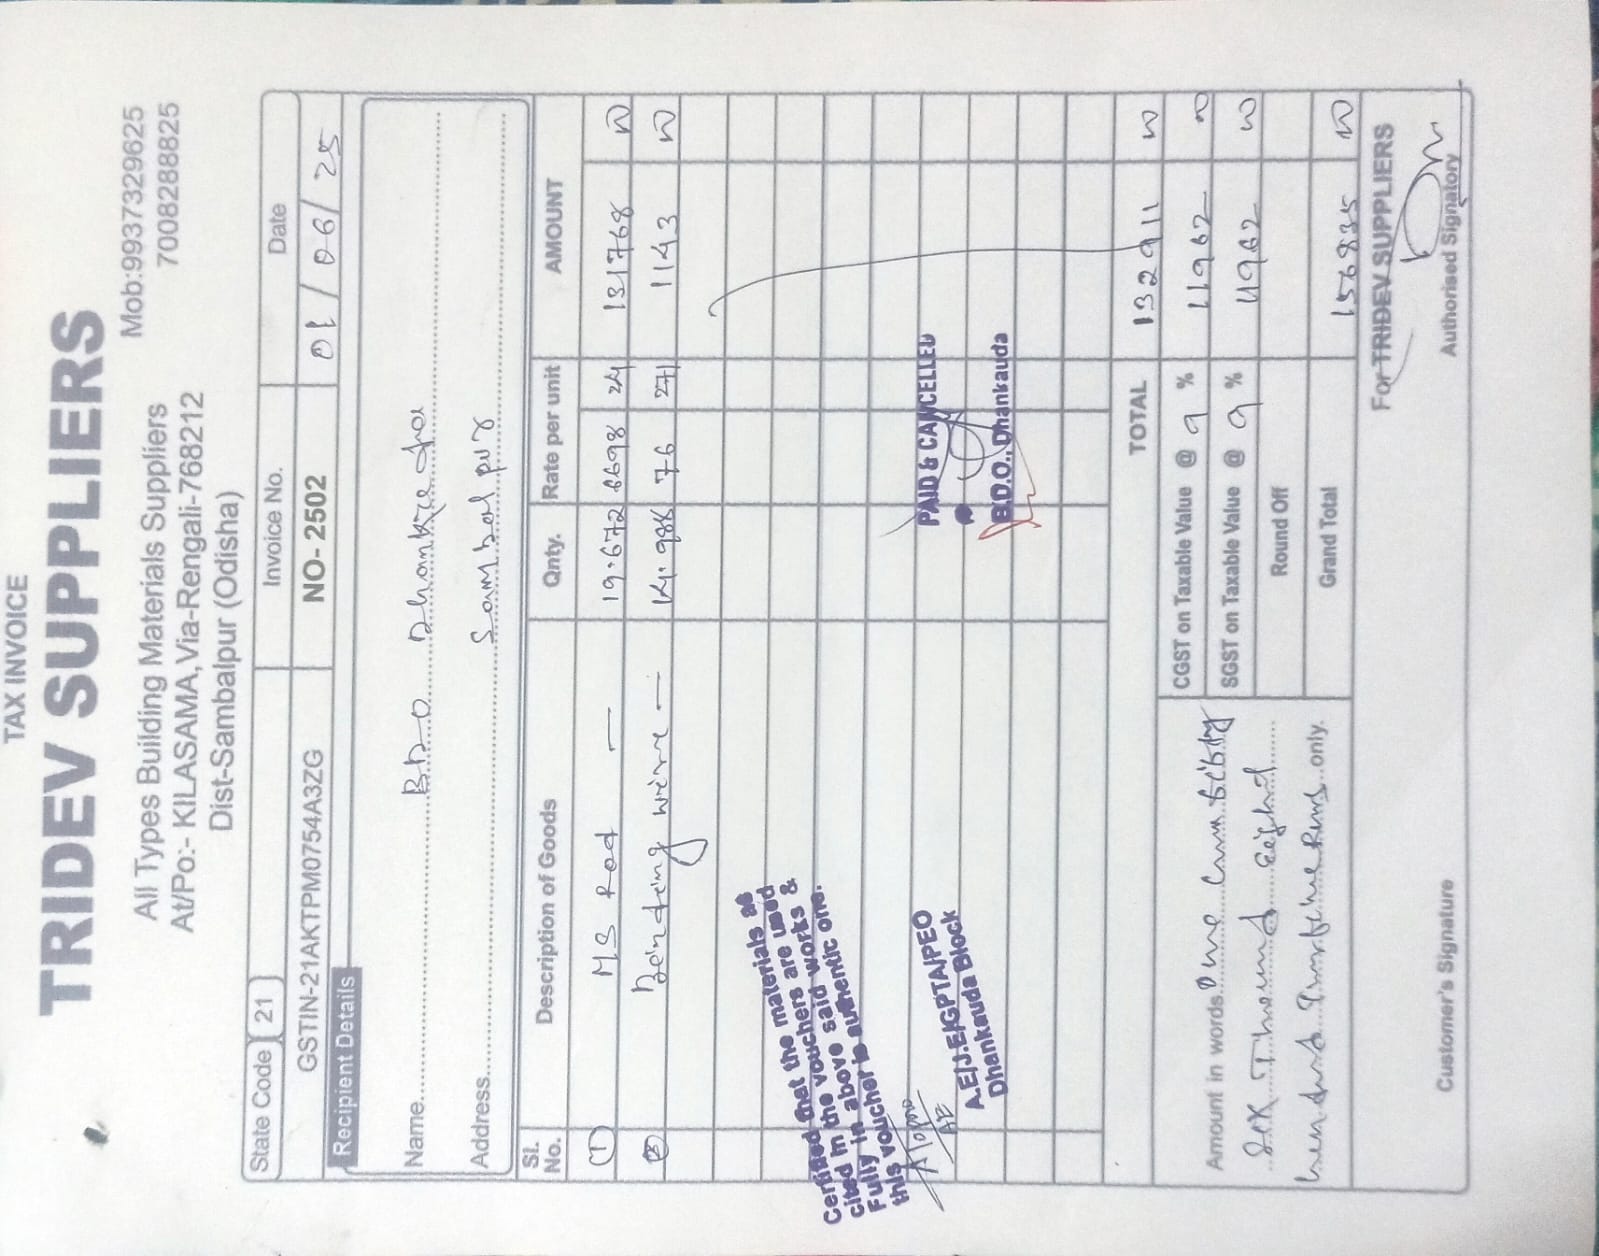 TAX INVOICE
TRIDEV SUPPLIERS
All Types Building Materials Suppliers
At/Po:- KILASAMA, Via-Rengali-768212
Dist-Sambalpur (Odisha)
Mob:9937329625
7008288825
State Code 21
Invoice No.
Date
GSTIN-21AKTPM0754A3ZG
NO- 2502
01/06/25
Recipient Details
Name BDO Dhankauda
Address Sambalpur
Sl. No. Description of Goods Qnty. Rate per unit AMOUNT
(1) M.S Rod — 19.672 6698 24 131768 00
(2) Beinding wire — 14.985 76 27 1143 00
Certified that the materials as
cited in the vouchers are used
Fully in above said works &
this voucher is authentic one.
A.E/J.E/GPTA/PEO
Dhankauda Block
PAID & CANCELLED
B.D.O., Dhankauda
TOTAL 132911 00
CGST on Taxable Value @ 9 % 11962 00
SGST on Taxable Value @ 9 % 11962 00
Round Off
Grand Total 156835 00
Amount in words One Lakh fifty
Six Thousand Eight
hundred only.
For TRIDEV SUPPLIERS
Customer's Signature
Authorised Signatory